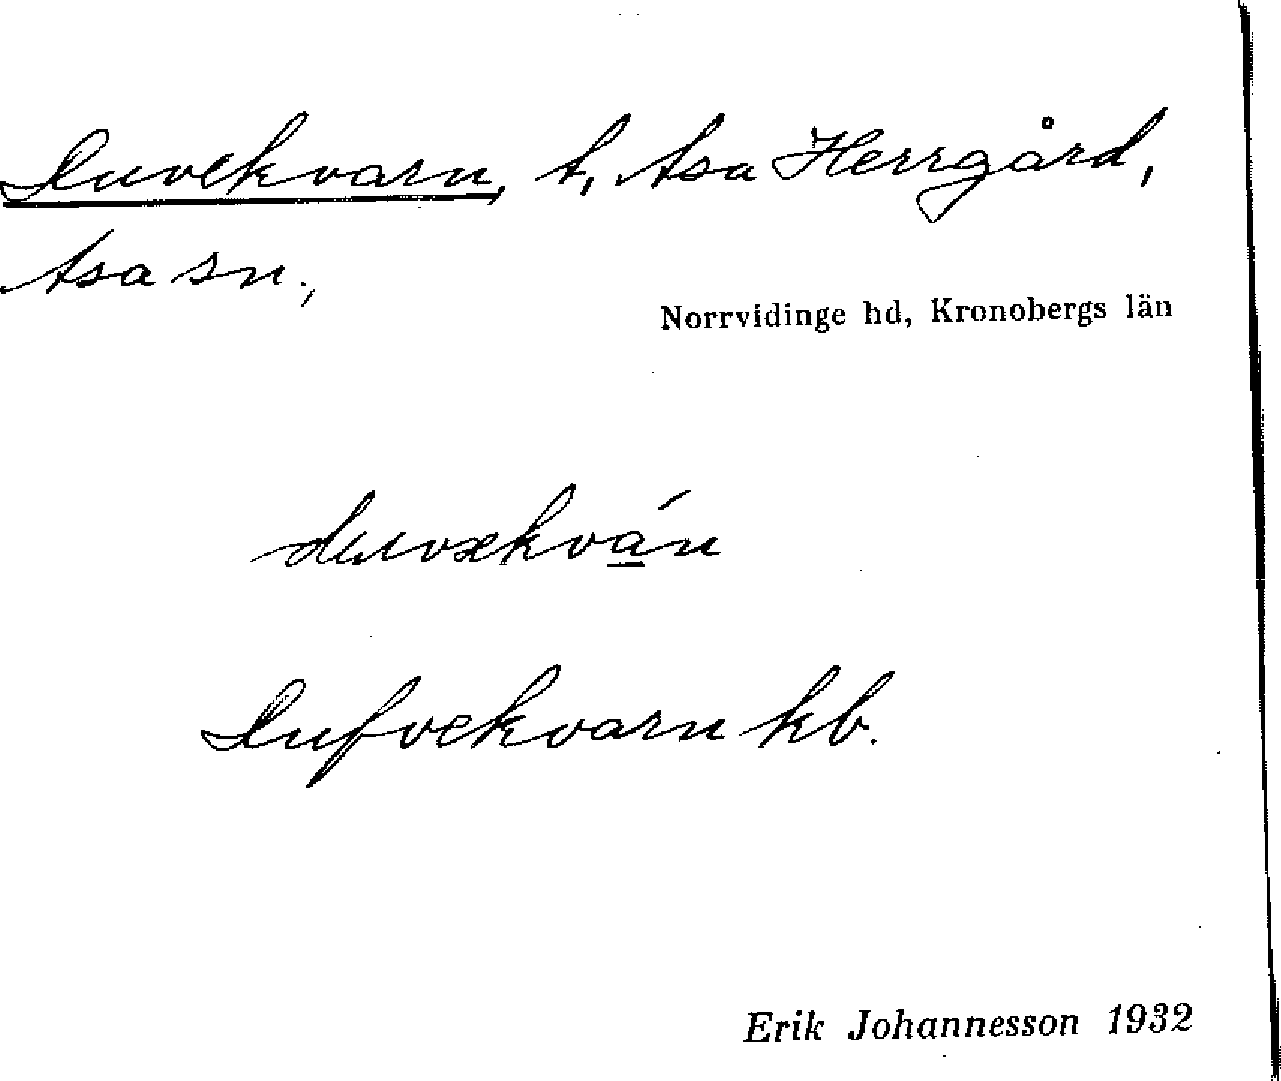 Duvekvarn, t, Asa Herrgård,
Asa sn.,
Norrvidinge hd, Kronobergs län
duvækván
Dufvekvarn kb.
Erik Johannesson 1932